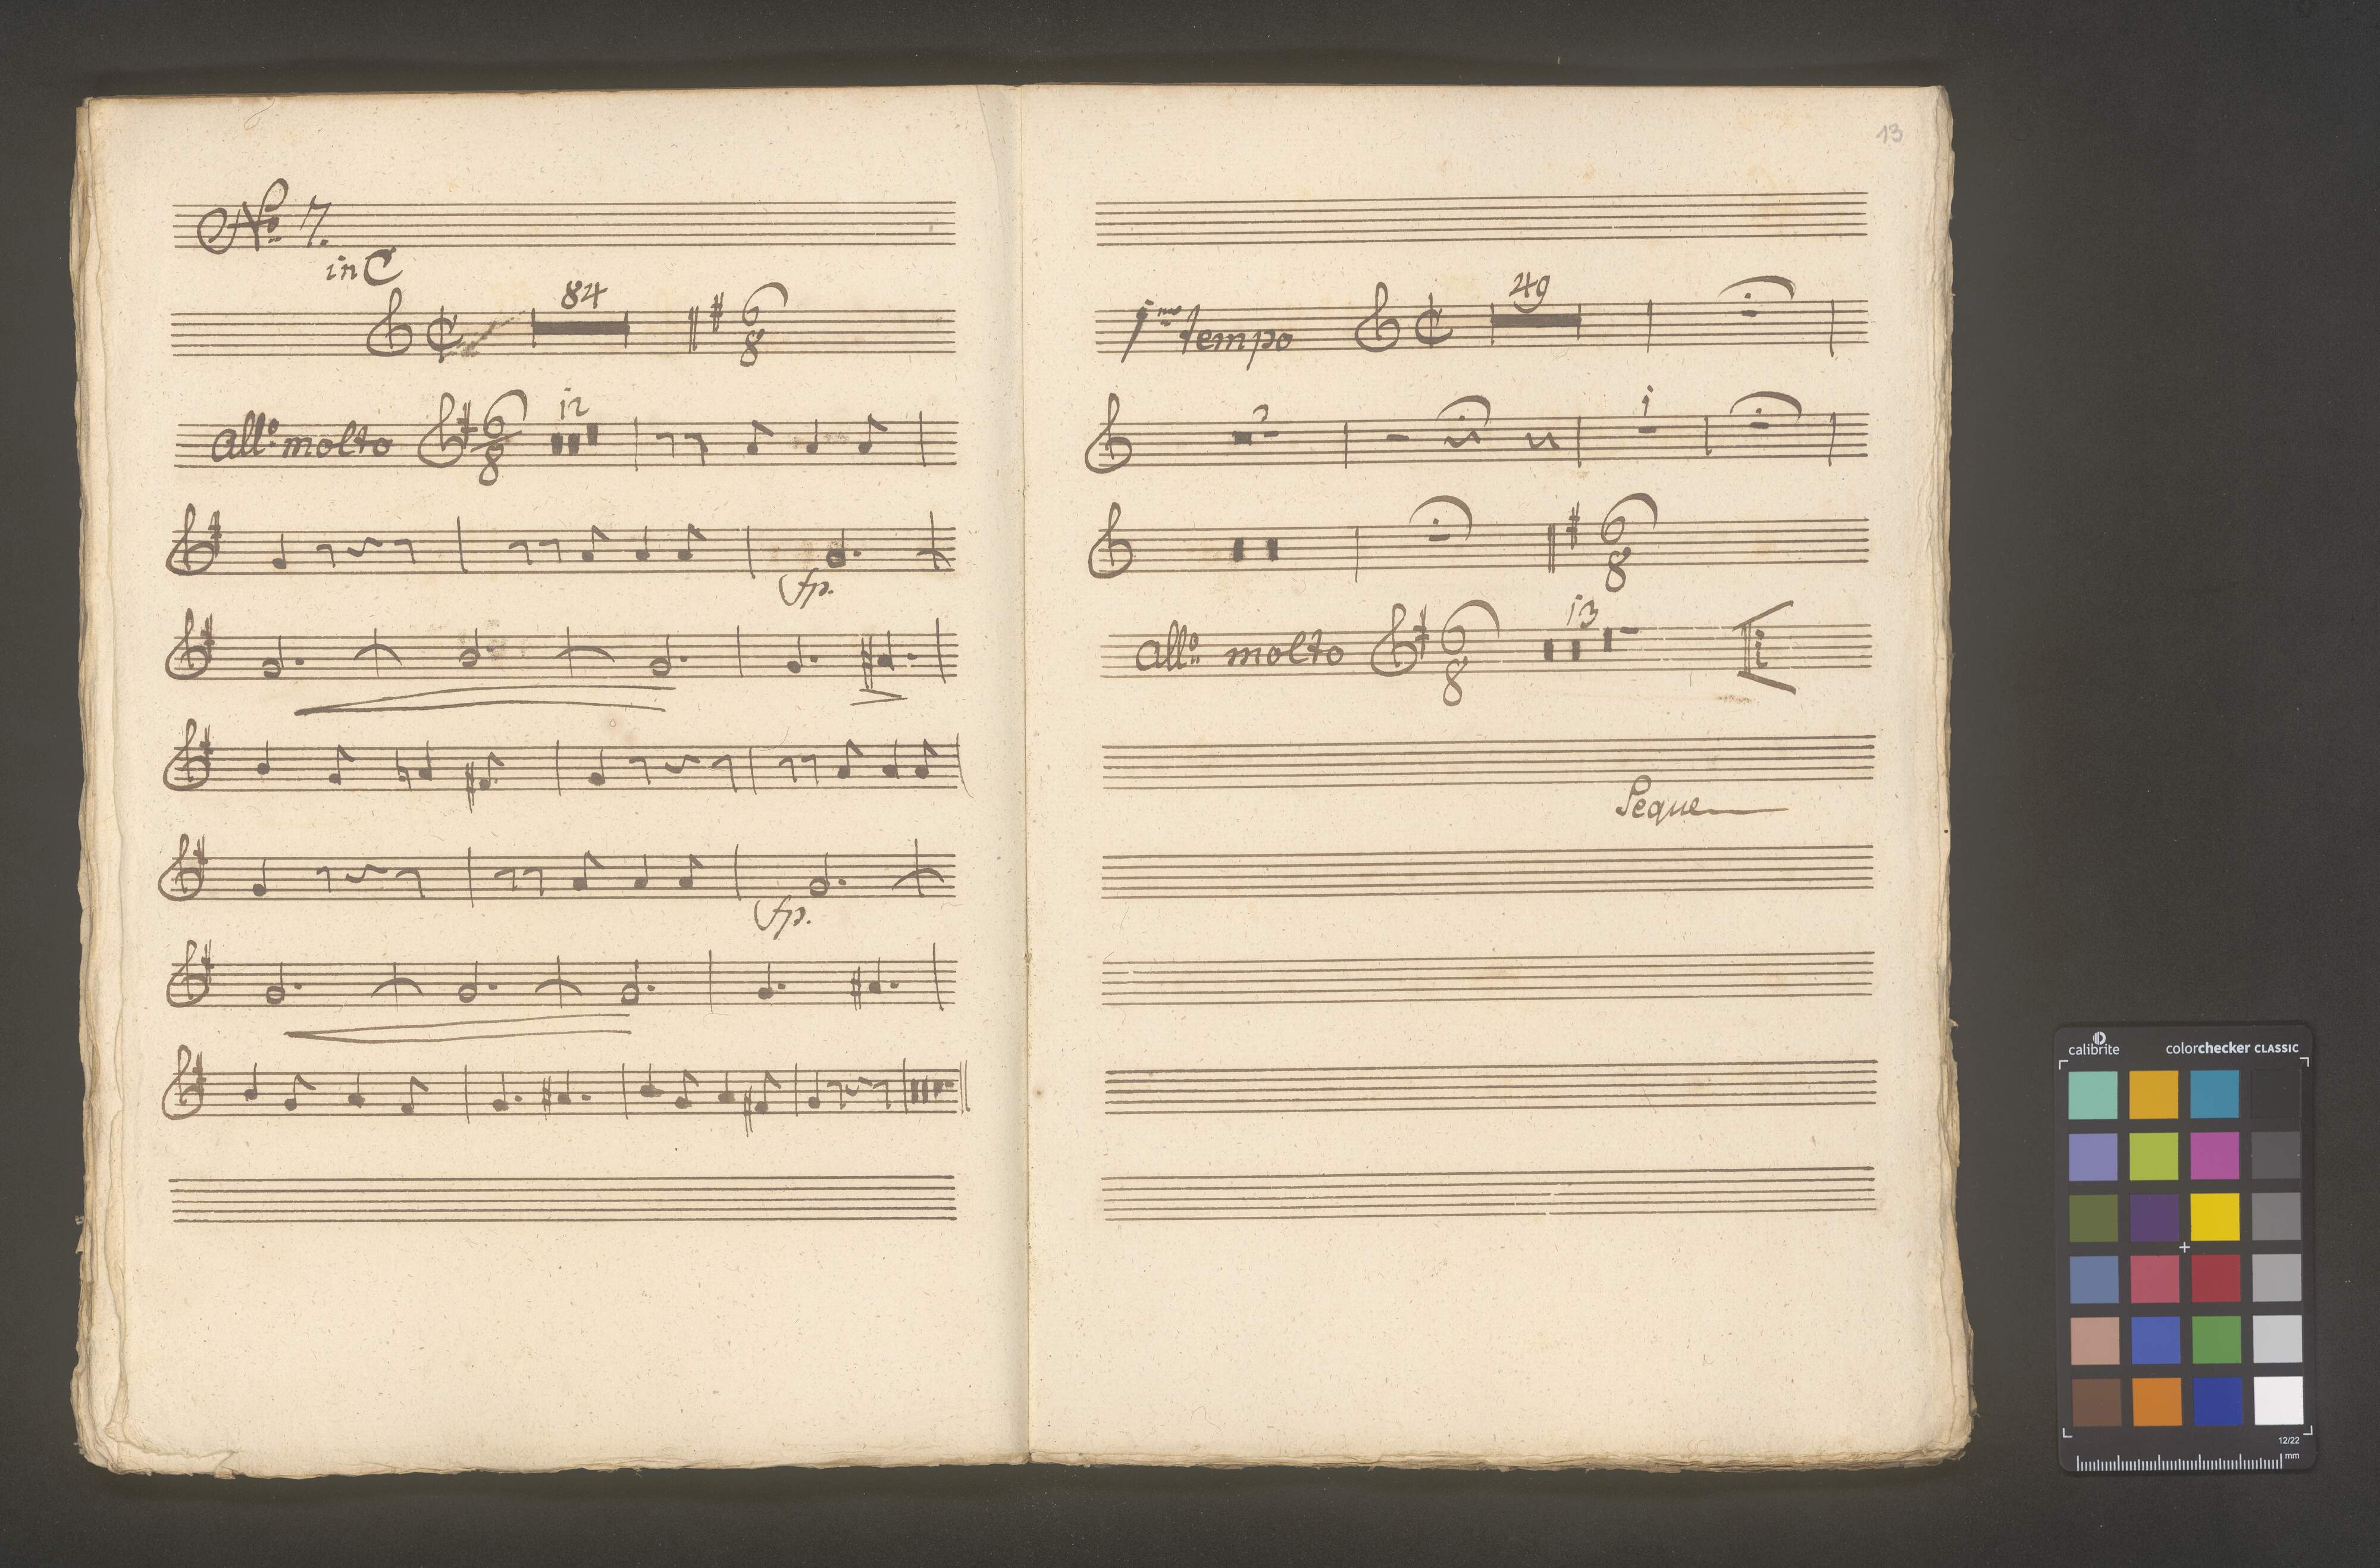 No. 7.
in C
84
6
8
all.o molto 6 12
8
fp.
fp.
13
1mo tempo 49
1
6
8
all.o molto 6 13
8
Seque
calibrite colorchecker CLASSIC
12/22
mm